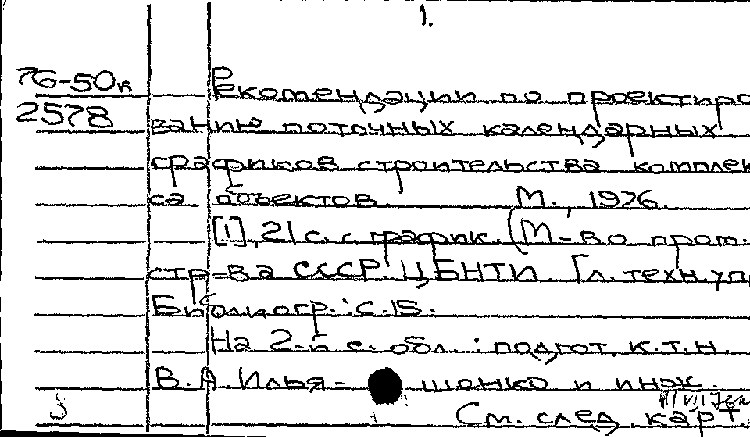 1.
76-50к Рекомендации по проектиро
2578 ванию поточных календарных
графиков строительства комплек
са объектов М., 1976.
[1], 21 с. с график. (М-во пром.
стр-ва СССР. ЦБНТИ. Гл. техн. упр
Библиогр.: с. 15.
На 2-й с. обл.: подгот. к.т.н.
В.А. Илья- шенко и инж.
См. след. карт.